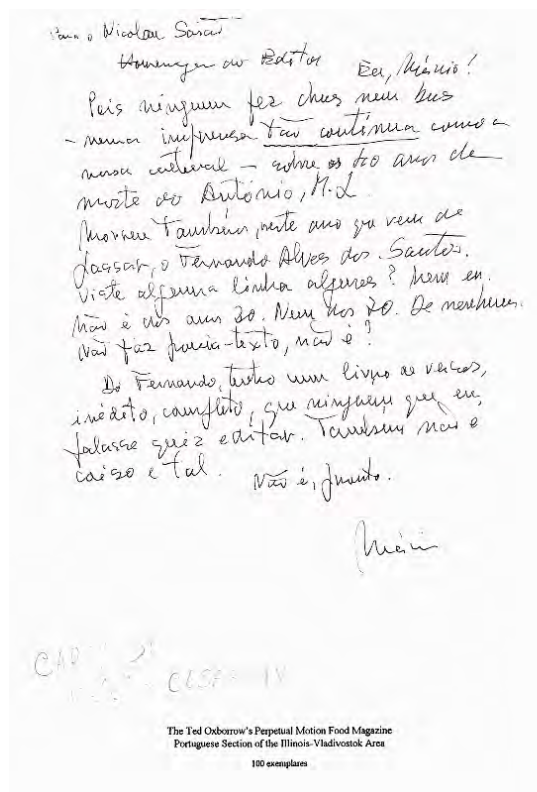 Para o Nicolau Saião
Homenagem do Editor
Eu, Mário!
Pois ninguém fez chus nem bus
– numa imprensa tão contínua como a
nossa cultural – sobre os 40 anos de
morte do António, M. L.
Morreu também, neste ano que vem de
passar, o Fernando Alves dos Santos.
Viste alguma linha algures? Nem eu.
Não é dos anos 30. Nem nos 70. De nenhuns.
Não faz
texto, não é?
Do Fernando, tenho um livro de versos,
inédito, completo, que ninguém a quem eu,
falasse quiz editar. Também não é
e tal. Não é, pronto.
Mário
CAD
CESA IV
The Ted Oxborrow's Perpetual Motion Food Magazine
Portuguese Section of the Illinois-Vladivostok Area
100 exemplares